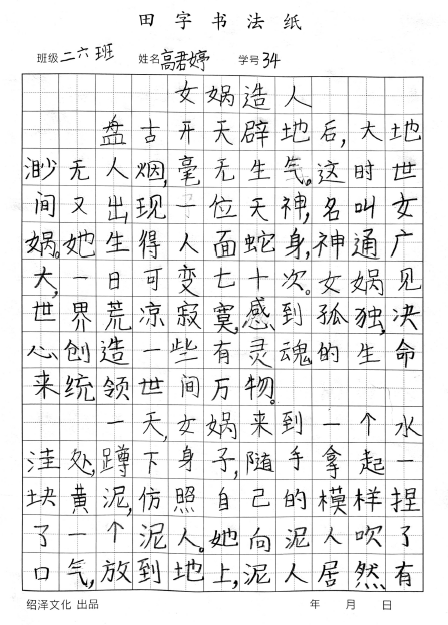 田字书法纸
班级 二六班 姓名 高君婷 学号 34
女娲造人
盘古开天辟地后,大地
渺无人烟,毫无生气。这时世
间又出现一位天神,名叫女
娲。她生得人面蛇身,神通广
大,一日可变七十次。女娲见
世界荒凉寂寞,感到孤独,决
心创造一些有灵魂的生命
来统领世间万物。
一天,女娲来到一个水
洼处,蹲下身子,随手拿起一
块黄泥,仿照自己的模样捏
了一个泥人。她向泥人吹了
口气,放到地上,泥人居然有
绍泽文化 出品 年 月 日